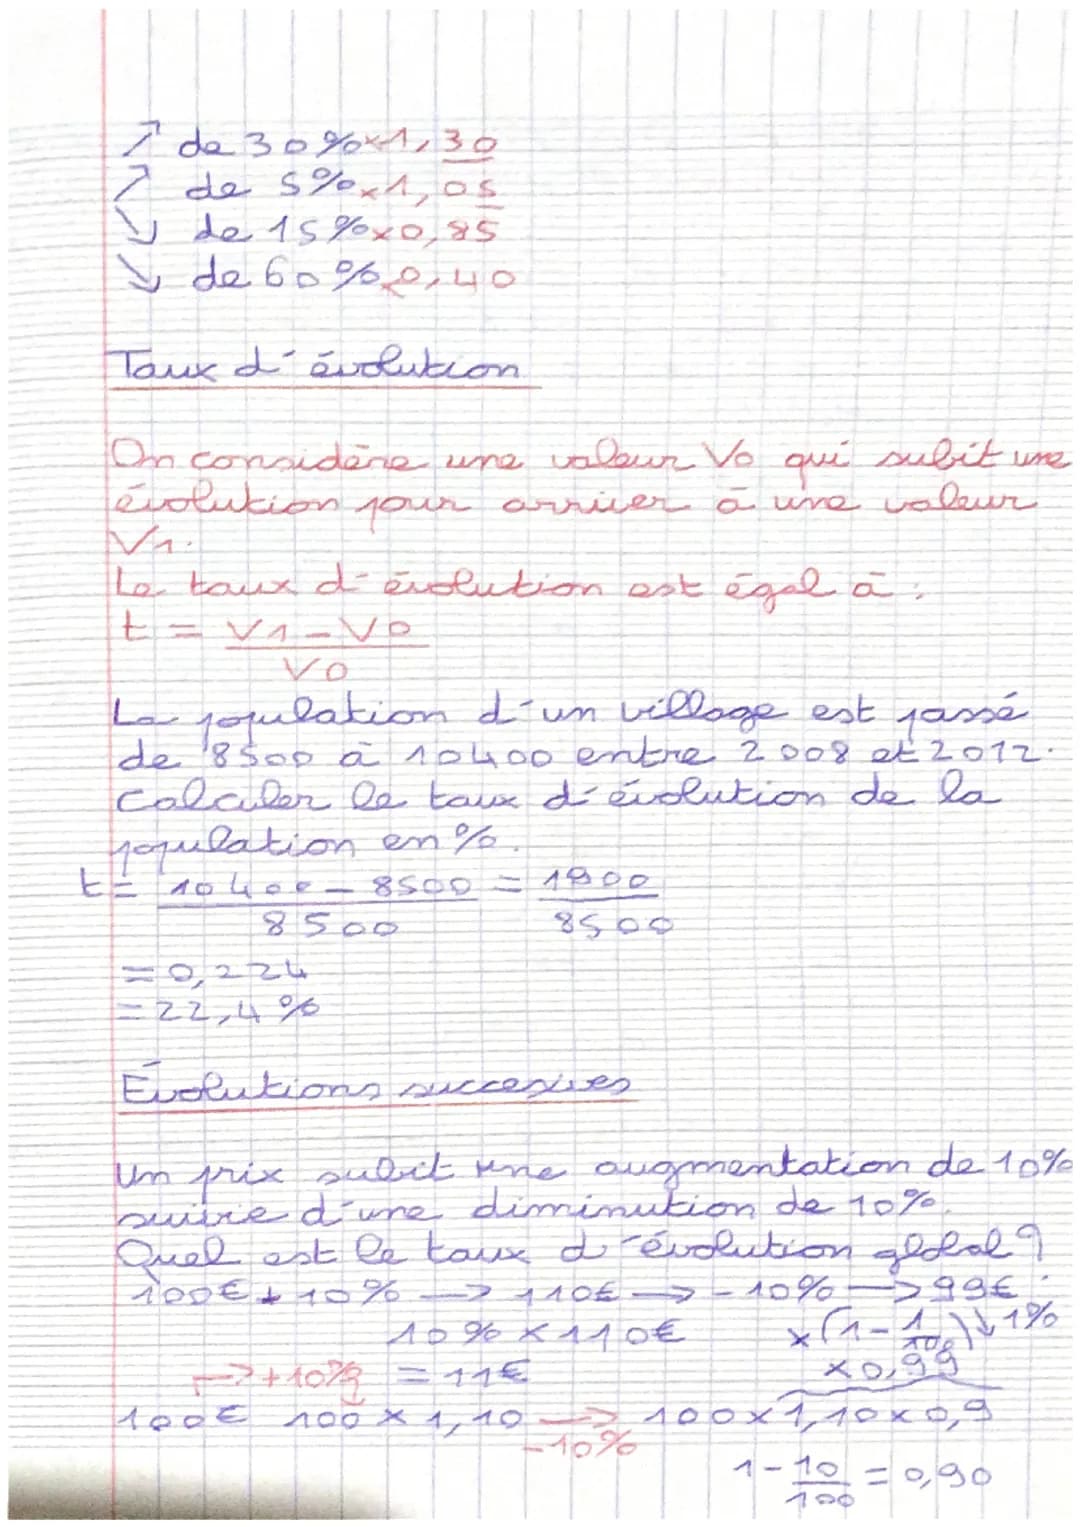 ↗ de 30% ×1,30
↗ de 5% ×1,05
↘ de 15% ×0,85
↘ de 60% ×0,40
Taux d'évolution
On considère une valeur V0 qui subit une
évolution pour arriver à une valeur
V1.
Le taux d'évolution est égal à :
t = V1 - V0
V0
La population d'un village est passé
de 8500 à 10400 entre 2008 et 2012.
Calculer le taux d'évolution de la
population en %.
t = 10400 - 8500 = 1900
8500 8500
= 0,224
= 22,4%
Évolutions succesives
Un prix subit une augmentation de 10%
suivie d'une diminution de 10%.
Quel est le taux d'évolution global ?
100€ + 10% → 110€ → -10% → 99€
10% × 110€ ×(1 - 1/100) ↘ 1%
→ +10% = 11€ ×0,99
100€ 100 × 1,10 → 100 × 1,10 × 0,9
-10%
1 - 10/100 = 0,90